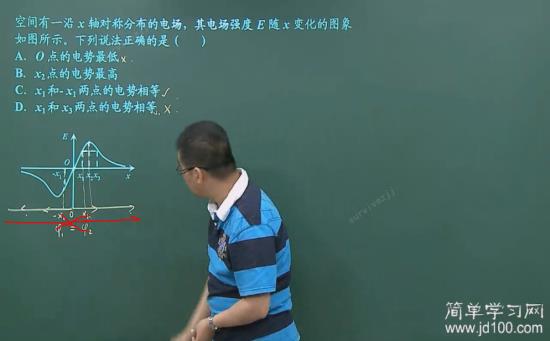 空间有一沿 x 轴对称分布的电场，其电场强度 E 随 x 变化的图象
如图所示。下列说法正确的是（　　）
A. O 点的电势最低 ×
B. x₂ 点的电势最高
C. x₁ 和 -x₁ 两点的电势相等 √
D. x₁ 和 x₃ 两点的电势相等 ×
E
O
-x₁ x₁ x₂ x₃ x
-x₁ 0 x₁
φ₁ = φ₂
survivezjj
简单学习网
www.jd100.com